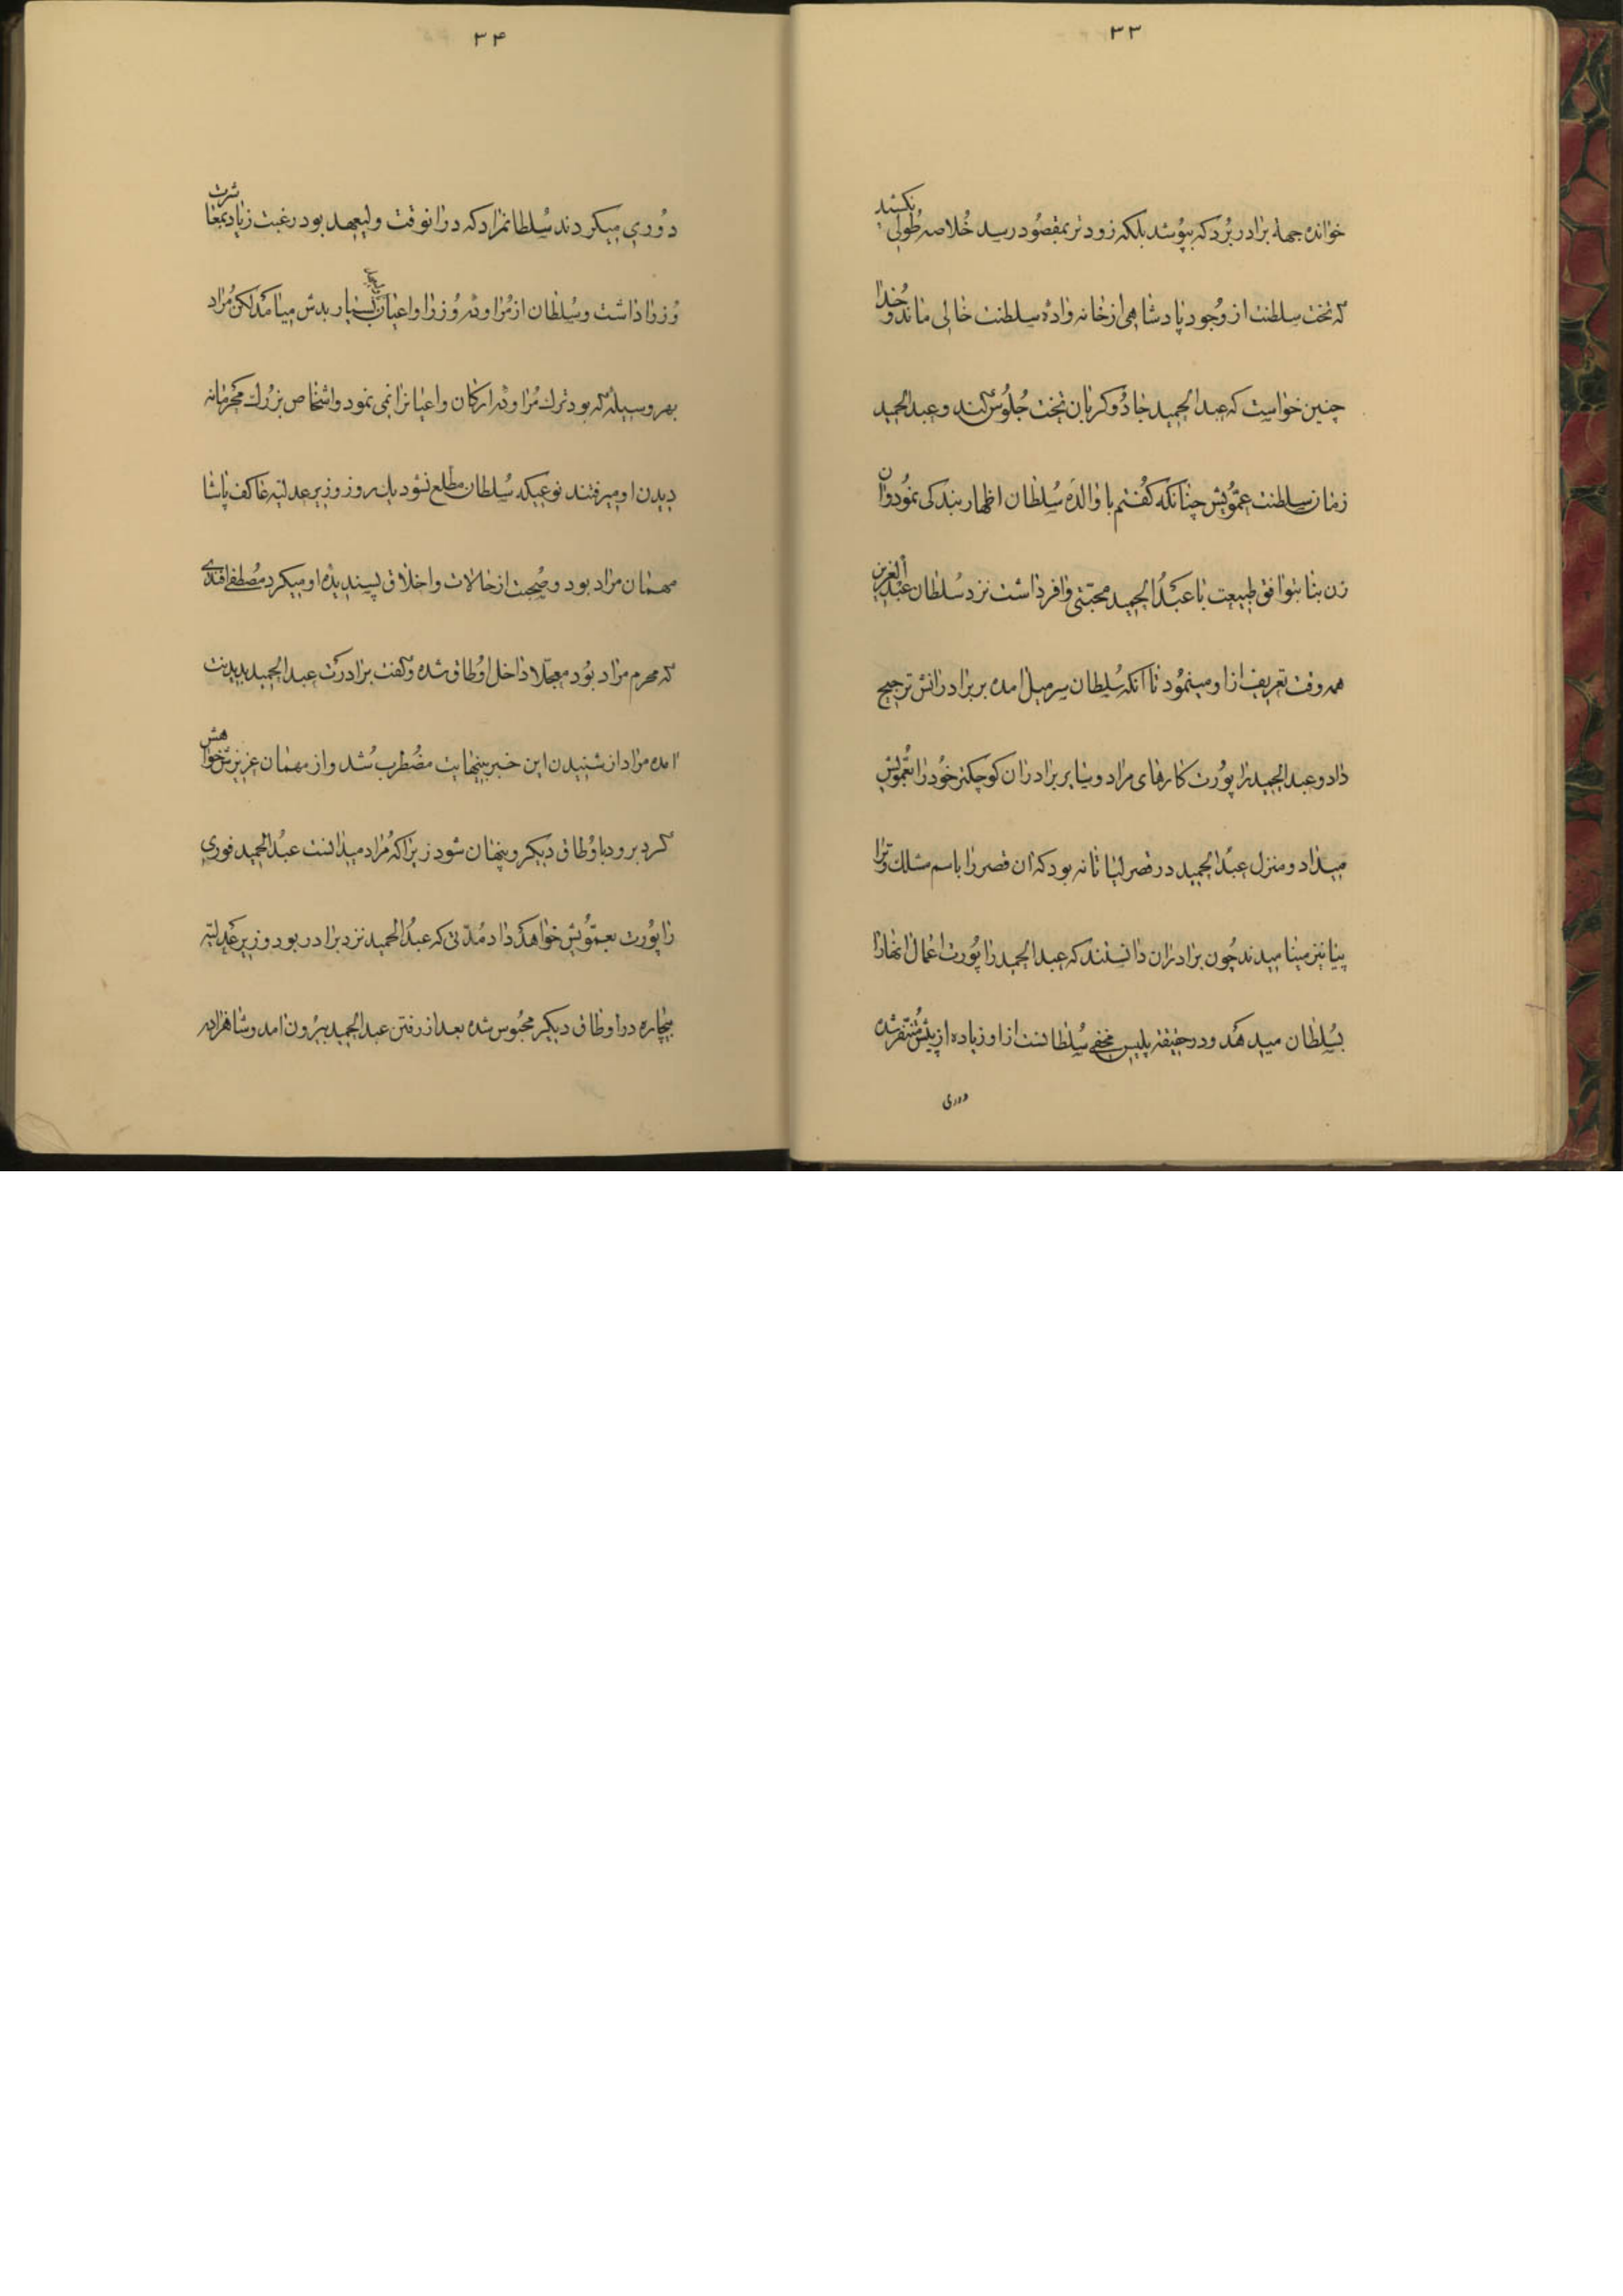 ۳۳
خوانده جهة برادر بُرد که بپوُشد بلکه زودتر بمقصُود رسد خُلاصه طُولی نکشید
که تخت سلطنت از وُجود پادشاهی از خانه وادهٔ سلطنت خالی ماند و خُدا
چنین خواست که عبدالحمید جادُوکر بان تخت جُلوُس کند و عبدالحمید
زمان سلطنت عمّویش چنانکه کُفتم با والدَه سُلطان اظهار بندکی نموُد و ان
زن بنا بتوافق طبیعت با عبدُالحمید محبّتی وافر داشت نزد سُلطان عبدُ العزیز
همه وقت تعریف از او مینموُد تا آنکه سُلطان سرمیل امده بر برادرانش ترجیح
داد و عبدالحمید راپوُرت کارهای مراد و سایر برادران کوچکتر خوُد را بعمّویش
میداد و منزل عبدُالحمید در قصر لیاتانه بود که ان قصر را باسم مسلک و ترا
پیا نیز مینامیدند چُون برادران دانستند که عبدالحمید راپُورت اعمال انهارا
بسُلطان میدهد و در حقیقه پلیس مخفی سُلطانست از او زیاده از پیش مُتنفّر شده
دوری
۳۴
دُوری میکردند سُلطانمراد که در انوقت ولیعهد بود رغبت زیاد بمعاشرت
وُزرا داشت و سُلطان از مُراودهٔ وُزرا و اعیان بسیار بدش میامد لکن مُراد
بهر وسیله که بود ترک مُراودهٔ ارکان و اعیانرا نمی نمود و اشخاص بزرُک محرمانه
دیدن او میرفتند نوعیکه سُلطان مطّلع نشود یکروز وزیر عدلیّه عاکف پاشا
مهمان مراد بود و صُحبت از حالات و اخلاق پسندیدهٔ او میکرد مُصطفی افندی
که محرم مراد بوُد معجّلا داخل اوُطاق شده و کفت برادرت عبدالحمید بدیدنت
امده مراد از شنیدن این خبر بینهایت مضُطرب شُد و از مهمان عزیزش خواهش
کرد برود باوُطاق دیکر و پنهان شود زیرا که مُراد میدانست عبدُالحمید فوری
راپوُرت بعمّوُیش خواهد داد مُدّتی که عبدُالحمید نزد برادر بود وزیر عدلیّه
بیچاره در اوطاق دیکر محبُوس شده بعد از رفتن عبدالحمید بیرُون امد و شاهزاده